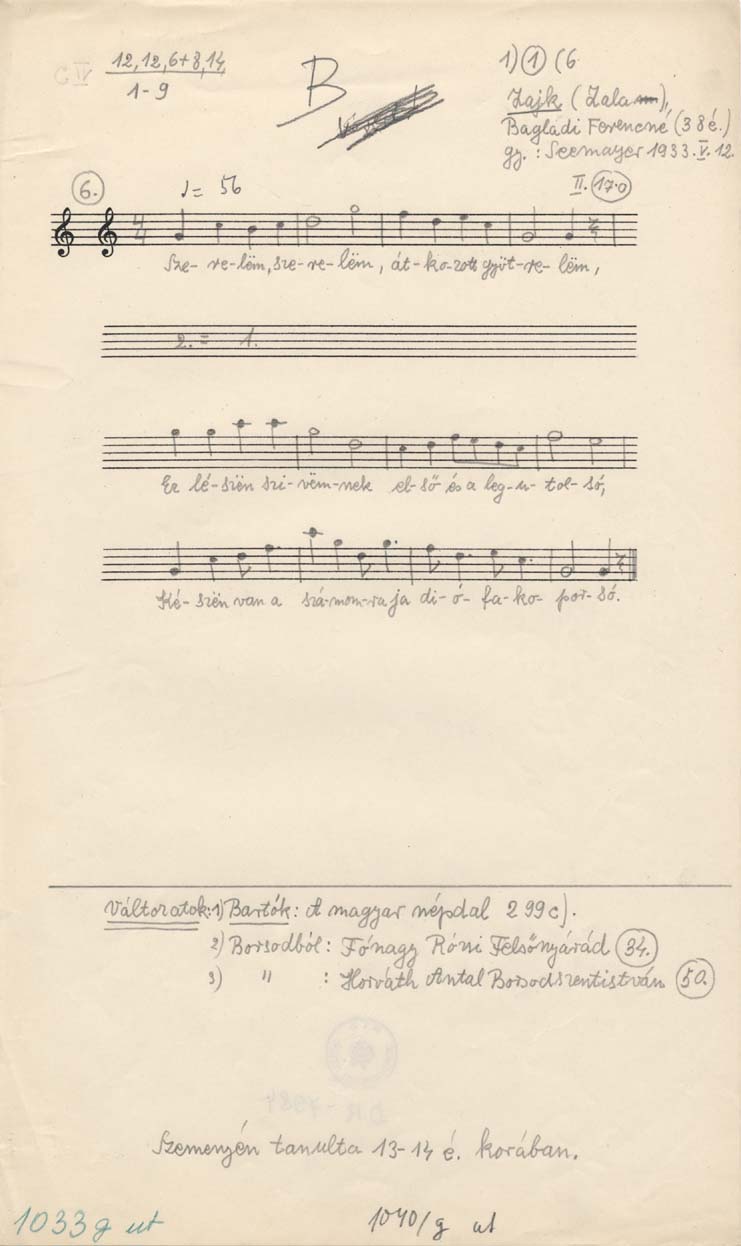 C IV
12,12,6+8,14,
1-9
B
1) 1 (6
Zajk (Zala m),
Bagladi Ferencné (38 é.)
gy. : Seemayer 1933. V. 12.
6.
♩= 56
II. 170
4/4
Sze- re-lëm, sze-re-lëm, át-ko-zott gyöt-re-lëm,
2. = 1.
Ez lé-szën szi-vëm-nek el-ső és a leg-u-tol-só,
Ké-szën van a szá-mom-ra ja di-ó-fa-ko-por-só.
Változatok: 1) Bartók: A magyar népdal 299 c).
2) Borsodból: Fónagy Rózsi Felsőnyárád 34.
3) " : Horváth Antal Borsodszentistván 50.
Szemenyén tanulta 13-14 é. korában.
1033 g ut
1040/g ut